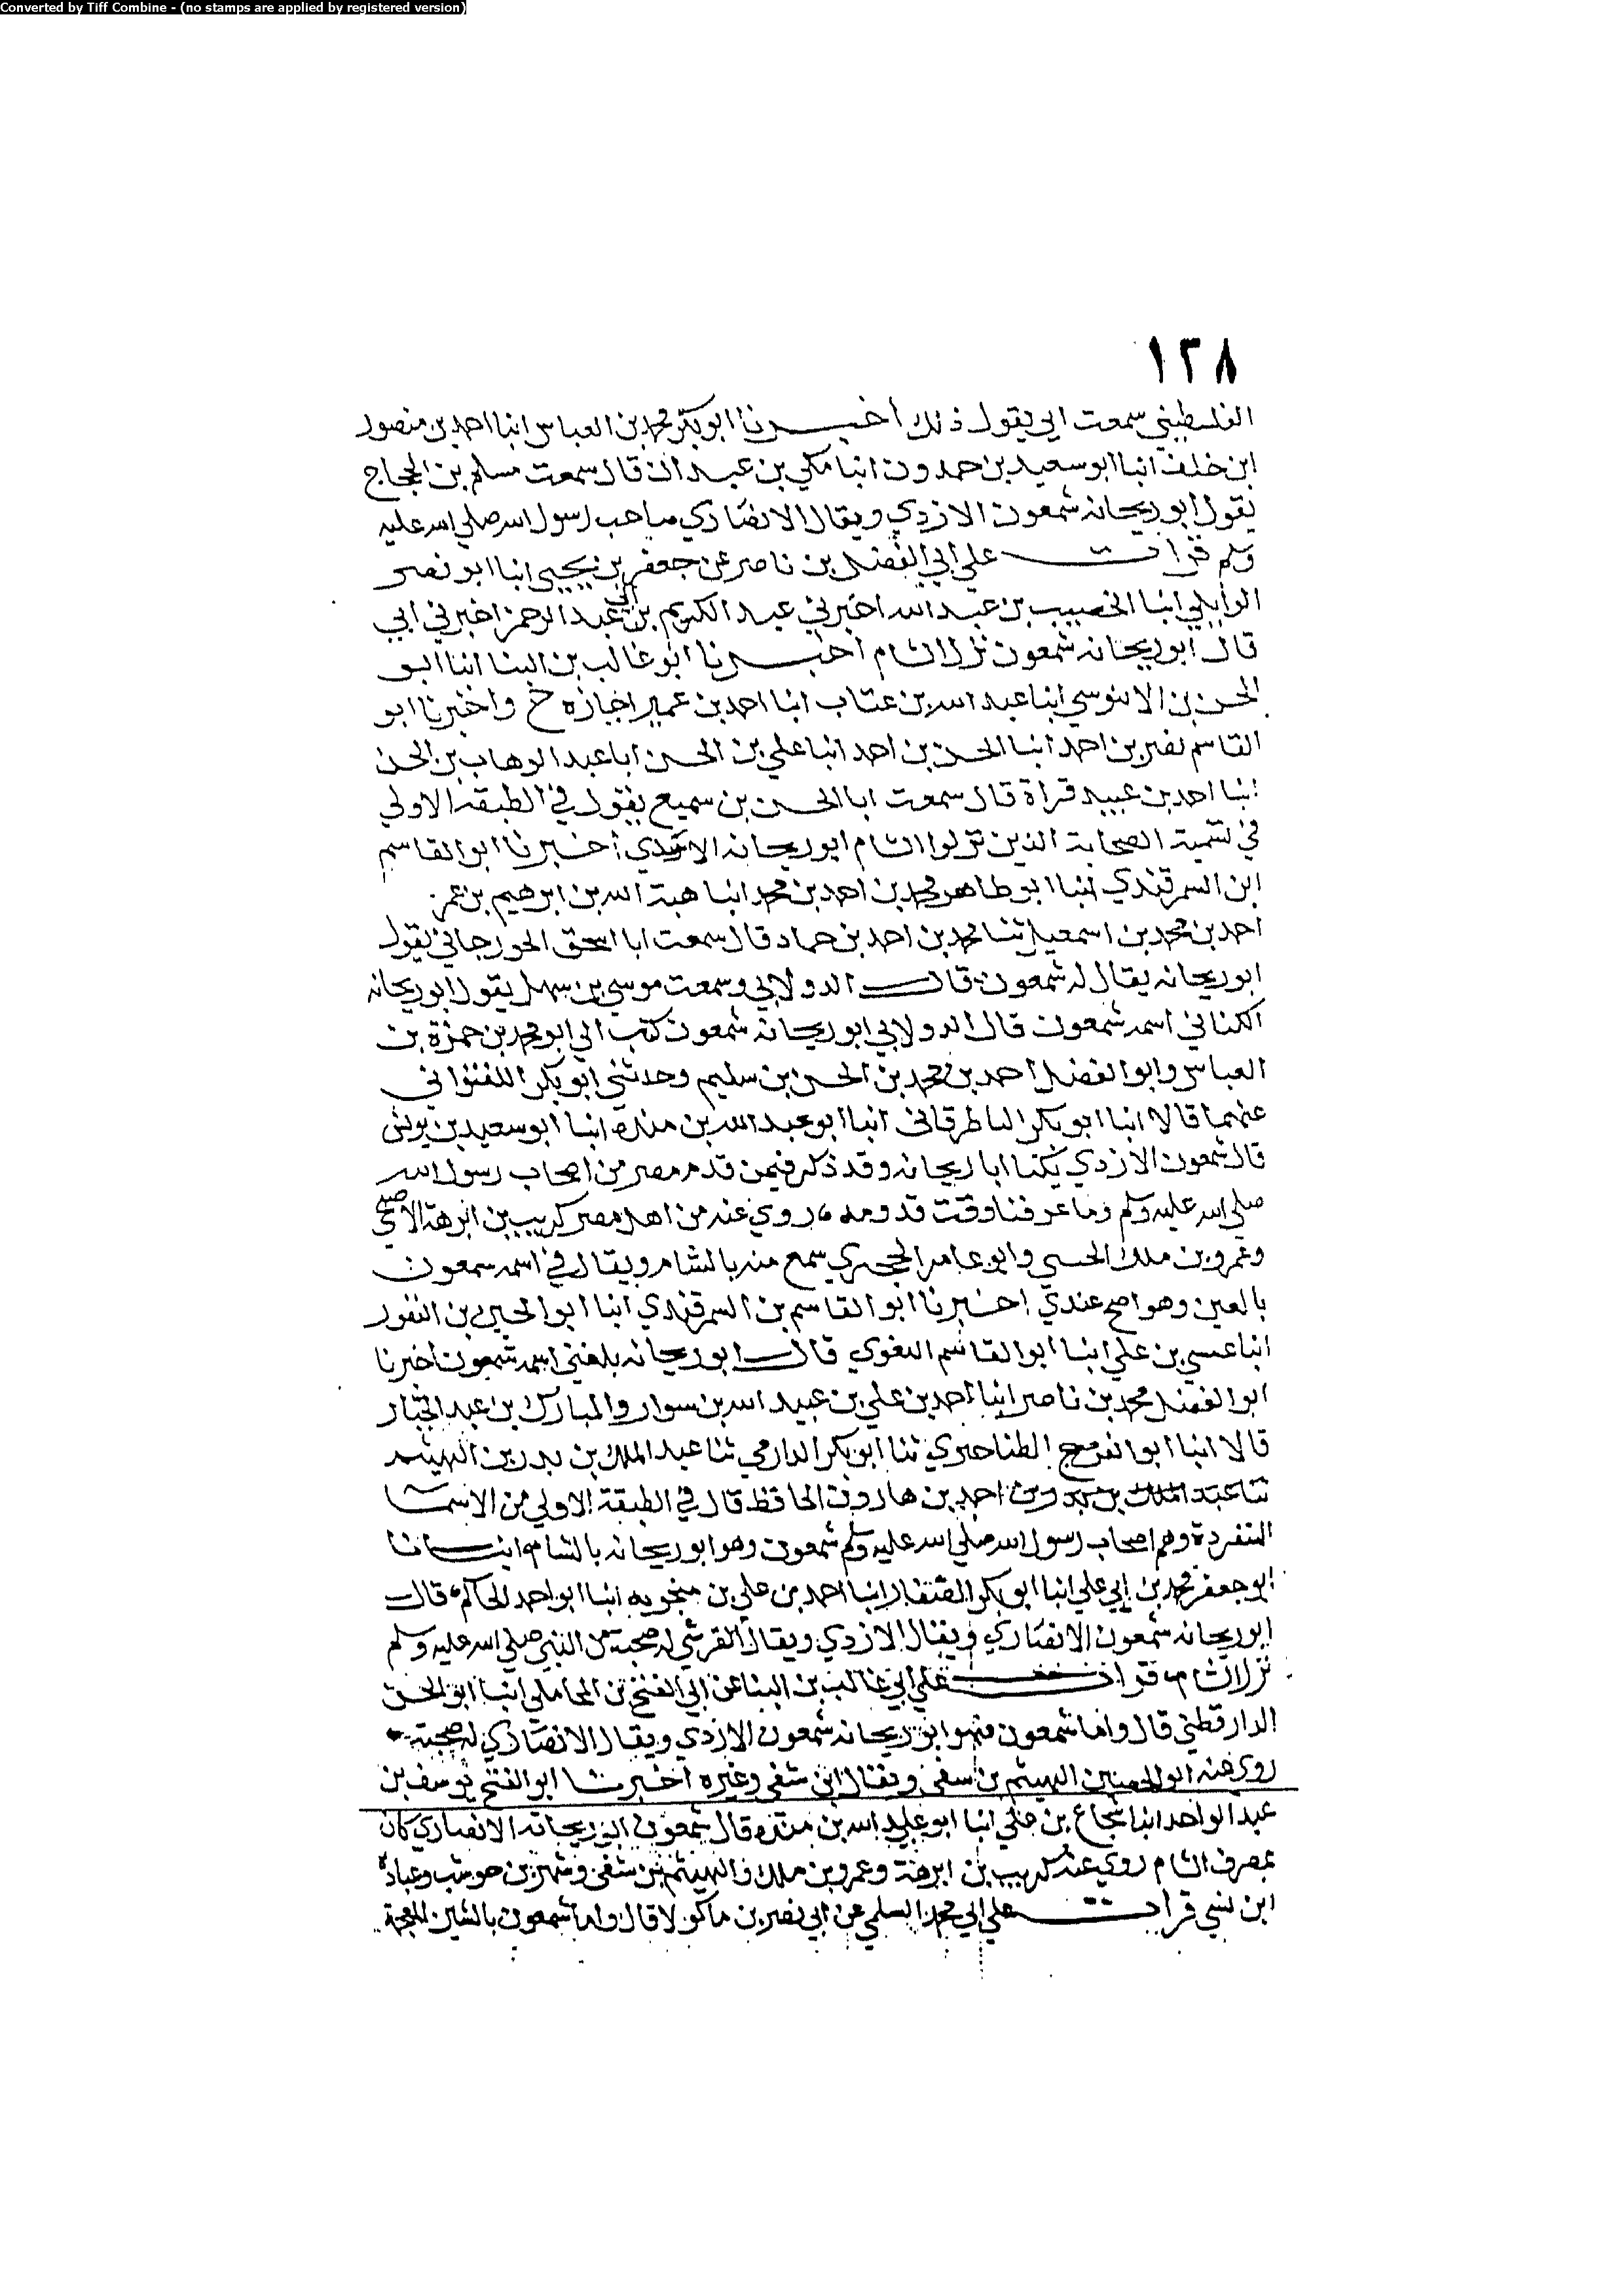 Converted by Tiff Combine - (no stamps are applied by registered version)
١٣٨
الفلسطيني سمعت ابي يقول ذلك اخبرنا ابو بكر محمد بن العباس انبا احمد بن منصور
ابن خلف انبا ابو سعيد بن حمدون انبا مكي بن عبدان قال سمعت مسلم بن الحجاج
يقول ابو ريحانه شمعون الازدي ويقال الانصاري صاحب رسول الله صلي الله عليه
وسلم قرات علي ابي الفضل بن ناصر عن جعفر بن يحيي انبا ابو نصر
الوايلي انبا الخصيب بن عبد الله اخبرني عبد الكريم بن ابي عبد الرحمن اخبرني ابي
قال ابو ريحانه شمعون نزل الشام اخبرنا ابو غالب بن البنا انبا ابو
الحسن بن الابنوسي انبا عبد الله بن عتاب انبا احمد بن عمير اجازه ح واخبرنا ابو
القاسم نصر بن احمد انبا الحسن بن احمد انبا علي بن الحسن ابا عبد الوهاب بن الحسن
انبا احمد بن عبيد قراة قال سمعت ابا الحسن بن سميع يقول في الطبقه الاولي
في تسمية الصحابة الذين نزلوا الشام ابو ريحانه الاسدي اخبرنا ابو القاسم
ابن السمرقندي انبا ابو طاهر محمد بن احمد بن محمد انبا هبة الله بن ابرهيم بن عمر
احمد بن محمد بن اسمعيل ثنا محمد بن احمد بن حماد قال سمعت ابا اسحق الجورجاني يقول
ابو ريحانه يقال له شمعون قال الدولابي وسمعت موسي بن سهل يقول ابو ريحانه
الكناني اسمه شمعون قال الدولابي ابو ريحانه شمعون كتب الي ابو محمد بن حمزة بن
العباس وابو الفضل احمد بن محمد بن الحسن بن سليم وحدثني ابو بكر اللفتواني
عنهما قالا انبا ابو بكر الباطرقاني انبا ابو عبد الله بن منده انبا ابو سعيد بن يونس
قال شمعون الازدي يكنا ابا ريحانه وقد ذكر فيمن قدم مصر من اصحاب رسول الله
صلي الله عليه وسلم وما عرفنا وقت قدومه روي عنه من اهل مصر كريب بن ابرهة الاصبحي
وعمرو بن ملك الحسي وابو عامر الحجري سمع منه بالشام ويقال في اسمه سمعون
بالعين وهو اصح عندي اخبرنا ابو القاسم بن السمرقندي انبا ابو الحسين بن النقور
انبا عيسي بن علي انبا ابو القاسم البغوي قال ابو ريحانه بلغني اسمه شمعون اخبرنا
ابو الفضل محمد بن ناصر انبا احمد بن علي بن عبيد الله بن سوار والمبارك بن عبد الجبار
قالا انبا ابو الفرج الطناجيري ثنا ابو بكر الدارمي ثنا عبد الملك بن بدر بن الهيثم
ثنا عبد الملك بن بدر بن احمد بن هارون الحافظ قال في الطبقة الاولي من الاسما
المنفردة وهم اصحاب رسول الله صلي الله عليه وسلم شمعون وهو ابو ريحانه بالشام انبانا
ابو جعفر محمد بن ابي علي انبا ابو بكر الصفار انبا احمد بن علي بن منجويه انبا ابو احمد الحاكم قال
ابو ريحانه شمعون الانصاري ويقال الازدي ويقال القرشي له صحبة من النبي صلي الله عليه وسلم
نزل الشام قرات علي ابي غالب بن البنا عن ابي الفتح بن المحاملي انبا ابو الحسن
الدارقطني قال واما شمعون فهو ابو ريحانه شمعون الازدي ويقال الانصاري له صحبة
روي عنه ابو الحصين الهيثم بن سفي ويقال ابن شفي وغيره اخبرنا ابو الفتح يوسف بن
عبد الواحد انبا شجاع بن علي انبا ابو عبد الله بن منده قال شمعون ابو ريحانة الانصاري كان
بمصر في الشام روي عنه كريب بن ابرهة وعمرو بن ملك والهيثم بن شفي وشهر بن حوشب وعبادة
ابن نسي قرات علي ابي محمد السلمي عن ابي نصر بن ماكولا قال واما شمعون بالشين المعجمة